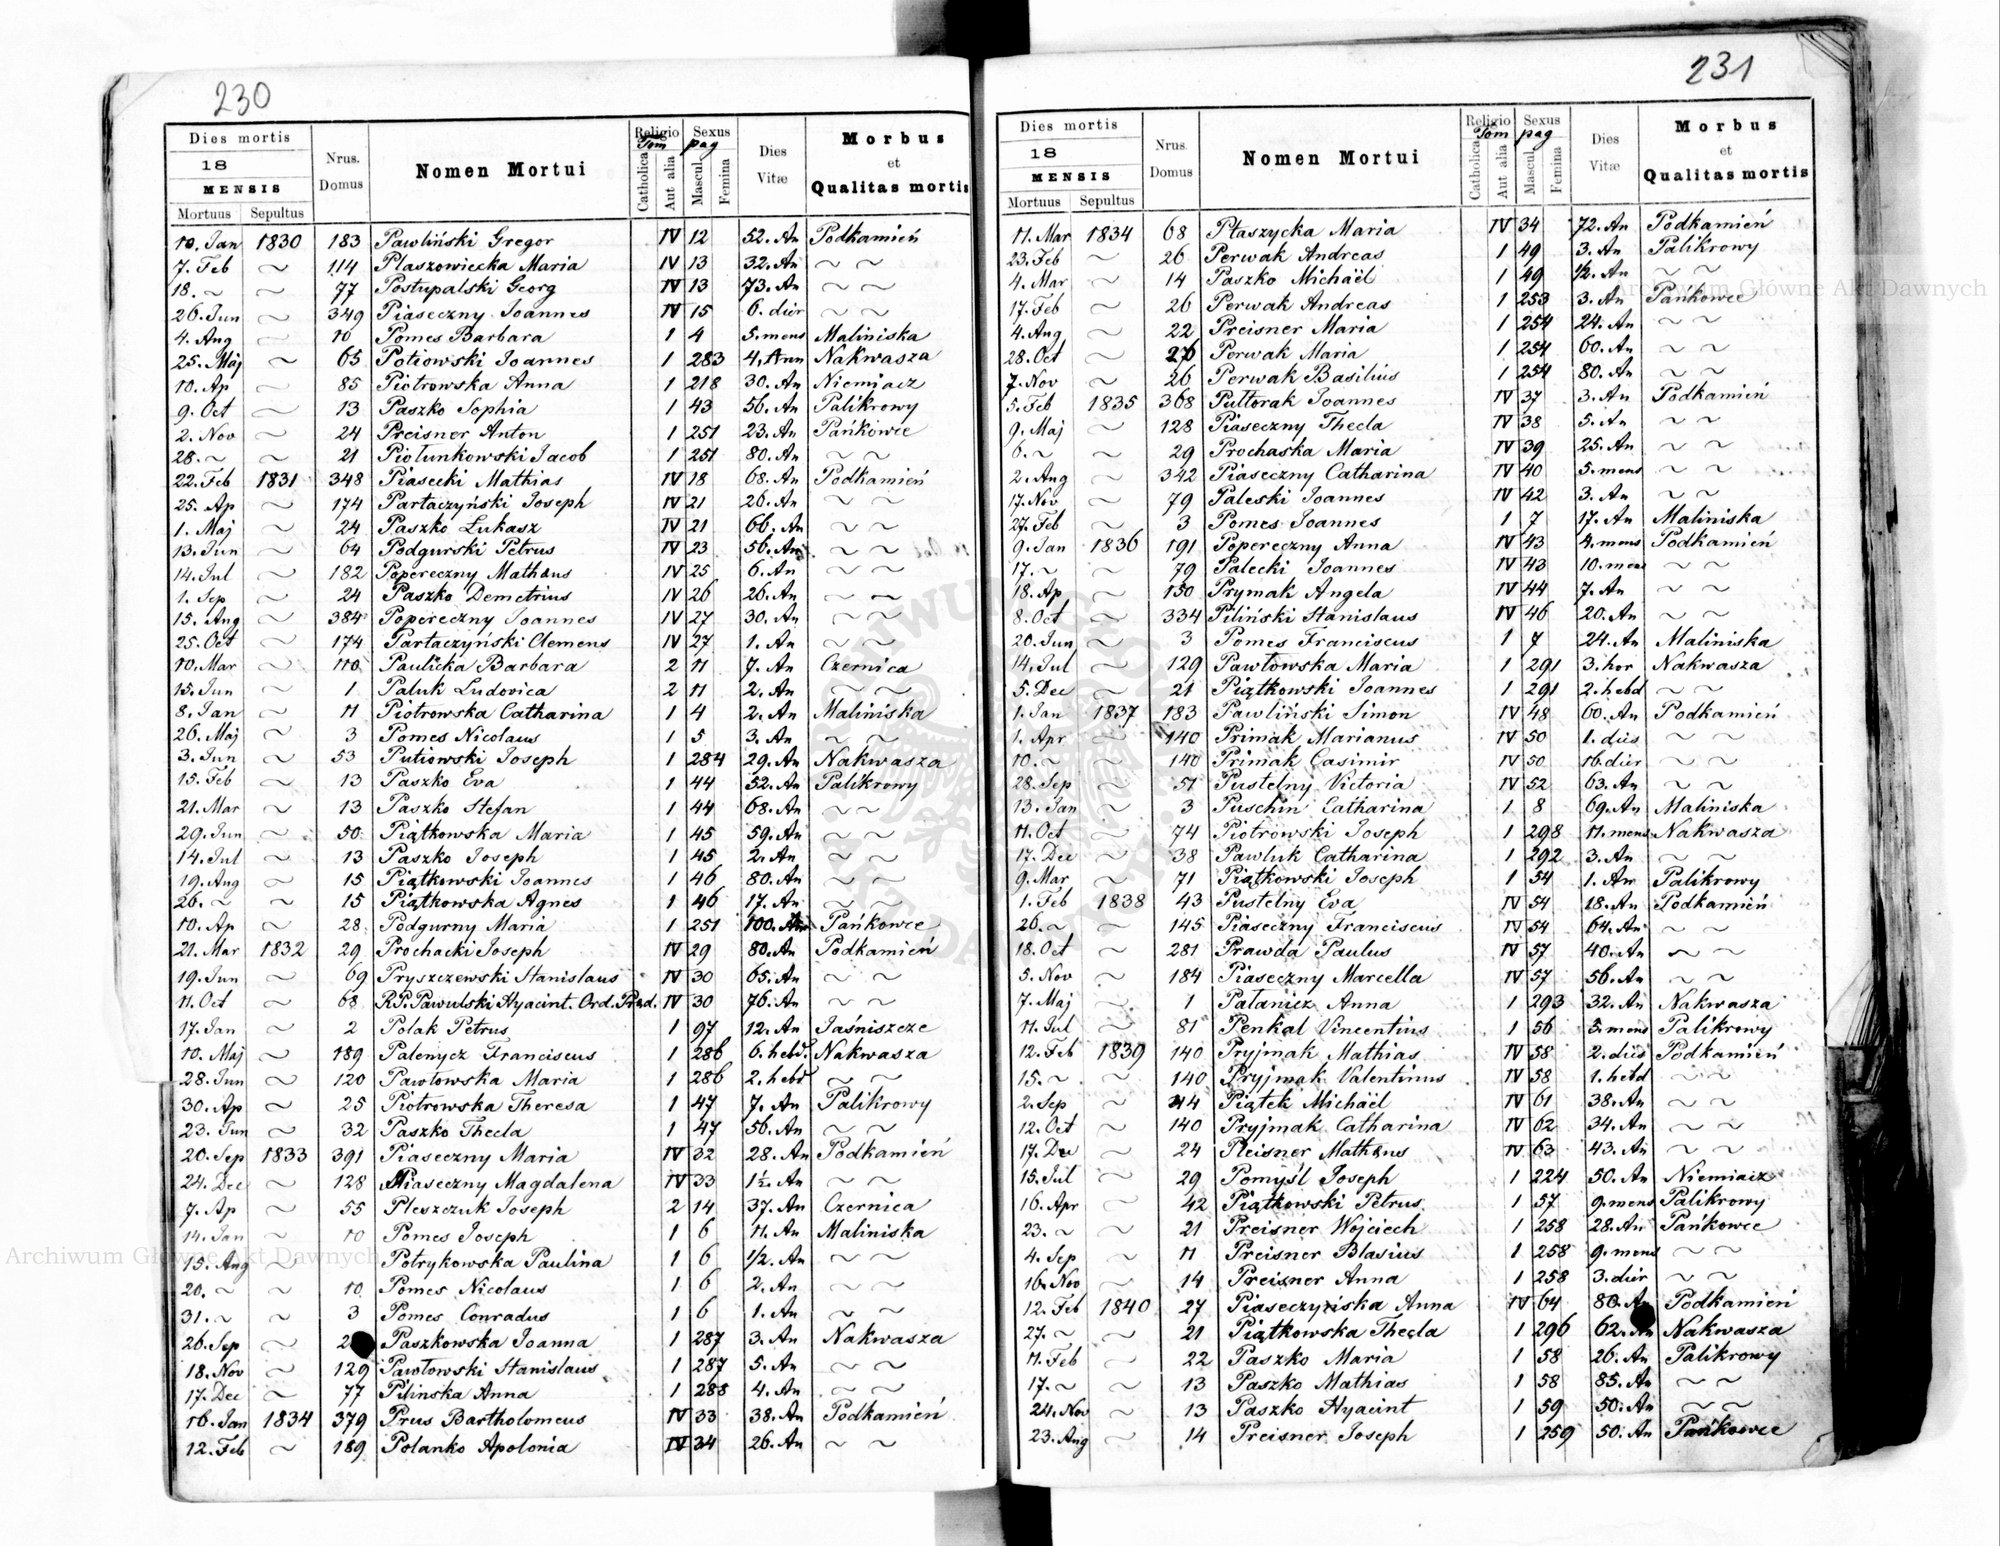 230
Dies mortis
18
MENSIS
Mortuus Sepultus
Nrus. Domus
Nomen Mortui
Religio Tom
Catholica Aut alia
Sexus pag
Mascul. Femina
Dies Vitæ
Morbus
et
Qualitas mortis
10. Jan 1830 183 Pawliński Gregor IV 12 52. An Podkamień
7. Feb ~ 114 Plaszowiecka Maria IV 13 32. An ~ ~
18. ~ ~ 77 Postupalski Georg IV 13 73. An ~ ~
26. Jun ~ 349 Piaseczny Joannes IV 15 6. dier ~ ~
4. Aug ~ 10 Pomes Barbara 1 4 5. mens Maliniska
25. Maj ~ 65 Potiowski Joannes 1 283 4. Ann Nakwasza
10. Ap ~ 85 Piotrowska Anna 1 218 30. An Niemiacz
9. Oct ~ 13 Paszko Sophia 1 43 56. An Palikrowy
2. Nov ~ 24 Preisner Anton 1 251 23. An Pańkowce
28. ~ ~ 21 Piotunkowski Jacob 1 251 80. An ~ ~
22. Feb 1831 348 Piasecki Mathias IV 18 68. An Podkamień
25. Ap ~ 174 Partaczyński Joseph IV 21 26. An ~ ~
1. Maj ~ 24 Paszko Lukasz IV 21 66. An ~ ~
13. Jun ~ 64 Podgurski Petrus IV 23 56. An ~ ~
14. Jul ~ 182 Popereczny Mathæus IV 25 6. An ~ ~
1. Sep ~ 24 Paszko Demetrius IV 26 26. An ~ ~
15. Aug ~ 384 Popereczny Joannes IV 27 30. An ~ ~
25. Oct ~ 174 Partaczyński Clemens IV 27 1. An ~ ~
10. Mar ~ 110 Paulicka Barbara 2 11 7. An Czernica
15. Jun ~ 1 Paluk Ludovica 2 11 2. An ~ ~
8. Jan ~ 11 Piotrowska Catharina 1 4 2. An Maliniska
26. Maj ~ 3 Pomes Nicolaus 1 5 3. An ~ ~
3. Jun ~ 53 Putiowski Joseph 1 284 29. An Nakwasza
15. Feb ~ 13 Paszko Eva 1 44 52. An Palikrowy
21. Mar ~ 13 Paszko Stefan 1 44 68. An ~ ~
29. Jun ~ 50 Piątkowska Maria 1 45 59. An ~ ~
14. Jul ~ 13 Paszko Joseph 1 45 2. An ~ ~
19. Aug ~ 15 Piątkowski Joannes 1 46 80. An ~ ~
26. ~ ~ 15 Piątkowska Agnes 1 46 17. An ~ ~
10. Ap ~ 28 Podgurny Maria 1 251 100. An Pańkowce
21. Mar 1832 29 Prochacki Joseph IV 29 80. An Podkamień
19. Jun ~ 69 Pryszczewski Stanislaus IV 30 65. An ~ ~
11. Oct ~ 68 R.P. Pawulski Hyacint. Ord. Præd. IV 30 76. An ~ ~
17. Jan ~ 2 Polak Petrus 1 97 12. An Jaśniszcze
10. Maj ~ 189 Palenycz Franciscus 1 286 6. hebd. Nakwasza
28. Jun ~ 120 Pawłowska Maria 1 286 2. hebd ~ ~
30. Ap ~ 25 Piotrowska Theresa 1 47 7. An Palikrowy
23. Jun ~ 32 Paszko Thecla 1 47 56. An ~ ~
20. Sep 1833 391 Piaseczny Maria IV 32 28. An Podkamień
24. Dec ~ 128 Piaseczny Magdalena IV 33 1½. An ~ ~
7. Ap ~ 55 Pleszczuk Joseph 2 14 37. An Czernica
14. Jan ~ 10 Pomes Joseph 1 6 11. An Maliniska
15. Aug ~ Potrykowska Paulina 1 6 1/2. An ~ ~
20. ~ ~ 10 Pomes Nicolaus 1 6 2. An ~ ~
31. ~ ~ 3 Pomes Conradus 1 6 1. An ~ ~
26. Sep ~ 2 Paszkowska Joanna 1 287 3. An Nakwasza
18. Nov ~ 129 Pawłowski Stanislaus 1 287 5. An ~ ~
17. Dec ~ 77 Pilinska Anna 1 288 4. An ~ ~
16. Jan 1834 379 Prus Bartholomeus IV 33 38. An Podkamień
12. Feb ~ 189 Polanko Apolonia IV 34 26. An ~ ~
231
Dies mortis
18
MENSIS
Mortuus Sepultus
Nrus. Domus
Nomen Mortui
Religio Tom
Catholica Aut alia
Sexus pag
Mascul. Femina
Dies Vitæ
Morbus
et
Qualitas mortis
11. Mar 1834 68 Ptaszycka Maria IV 34 72. An Podkamień
23. Feb ~ 26 Perwak Andreas 1 49 3. An Palikrowy
4. Mar ~ 14 Paszko Michäel 1 49 12. An ~ ~
17. Feb ~ 26 Perwak Andreas 1 253 3. An Pańkowce
4. Aug ~ 22 Preisner Maria 1 254 24. An ~ ~
28. Oct ~ 26 Perwak Maria 1 254 60. An ~ ~
7. Nov ~ 26 Perwak Basilius 1 254 80. An ~ ~
5. Feb 1835 368 Pułtorak Joannes IV 37 3. An Podkamień
9. Maj ~ 128 Piaseczny Thecla IV 38 5. An ~ ~
6. ~ ~ 29 Prochaska Maria IV 39 25. An ~ ~
2. Aug ~ 342 Piaseczny Catharina IV 40 5. mens ~ ~
17. Nov ~ 79 Paleski Joannes IV 42 3. An ~ ~
27. Feb ~ 3 Pomes Joannes 1 7 17. An Maliniska
9. Jan 1836 191 Popereczny Anna IV 43 4. mens Podkamień
17. ~ ~ 79 Palecki Joannes IV 43 10. mens ~ ~
18. Ap ~ 130 Prymak Angela IV 44 7. An ~ ~
8. Oct ~ 334 Piliński Stanislaus IV 46 20. An ~ ~
20. Jun ~ 3 Pomes Franciscus 1 7 24. An Maliniska
14. Jul ~ 129 Pawłowska Maria 1 291 3. hor Nakwasza
5. Dec ~ 21 Piątkowski Joannes 1 291 2. hebd ~ ~
1. Jan 1837 183 Pawliński Simon IV 48 60. An Podkamień
1. Apr ~ 140 Primak Marianus IV 50 1. dies ~ ~
10. ~ ~ 140 Primak Casimir IV 50 16. dier ~ ~
28. Sep ~ 51 Pustelny Victoria IV 52 63. An ~ ~
13. Jan ~ 3 Puschin Catharina 1 8 69. An Maliniska
11. Oct ~ 74 Piotrowski Joseph 1 298 11. mens Nakwasza
17. Dec ~ 38 Pawluk Catharina 1 292 3. An ~ ~
9. Mar ~ 71 Piątkowski Joseph 1 54 1. An Palikrowy
1. Feb 1838 43 Pustelny Eva IV 54 18. An Podkamień
26. ~ ~ 145 Piaseczny Franciscus IV 54 64. An ~ ~
18. Oct ~ 281 Prawda Paulus IV 57 40. An ~ ~
5. Nov ~ 184 Piaseczny Marcella IV 57 56. An ~ ~
7. Maj ~ 1 Pałanicz Anna 1 293 32. An Nakwasza
11. Jul ~ 81 Penkal Vincentius 1 56 5. mens Palikrowy
12. Feb 1839 140 Pryjmak Mathias IV 58 2. dies Podkamień
15. ~ ~ 140 Pryjmak Valentinus IV 58 1. hebd ~ ~
2. Sep ~ 44 Piątek Michäel IV 61 38. An ~ ~
12. Oct ~ 140 Pryjmak Catharina IV 62 34. An ~ ~
17. Dec ~ 24 Pleisner Mathæus IV 63 43. An ~ ~
15. Jul ~ 29 Pomyśl Joseph 1 224 50. An Niemiacz
16. Apr ~ 42 Piątkowski Petrus 1 57 9. mens Palikrowy
23. ~ ~ 21 Preisner Wojciech 1 258 28. An Pańkowce
4. Sep ~ 11 Preisner Blasius 1 258 9. mens ~ ~
16. Nov ~ 14 Preisner Anna 1 258 3. dier ~ ~
12. Feb 1840 27 Piaseczyńska Anna IV 64 80. An Podkamień
27. ~ ~ 21 Piątkowska Thecla 1 296 62. An Nakwasza
11. Feb ~ 22 Paszko Maria 1 58 26. An Palikrowy
17. ~ ~ 13 Paszko Mathias 1 58 85. An ~ ~
24. Nov ~ 13 Paszko Hyacint 1 59 50. An ~ ~
23. Aug ~ 14 Preisner Joseph 1 259 50. An Pańkowce
Archiwum Główne Akt Dawnych
Archiwum Główne Akt Dawnych